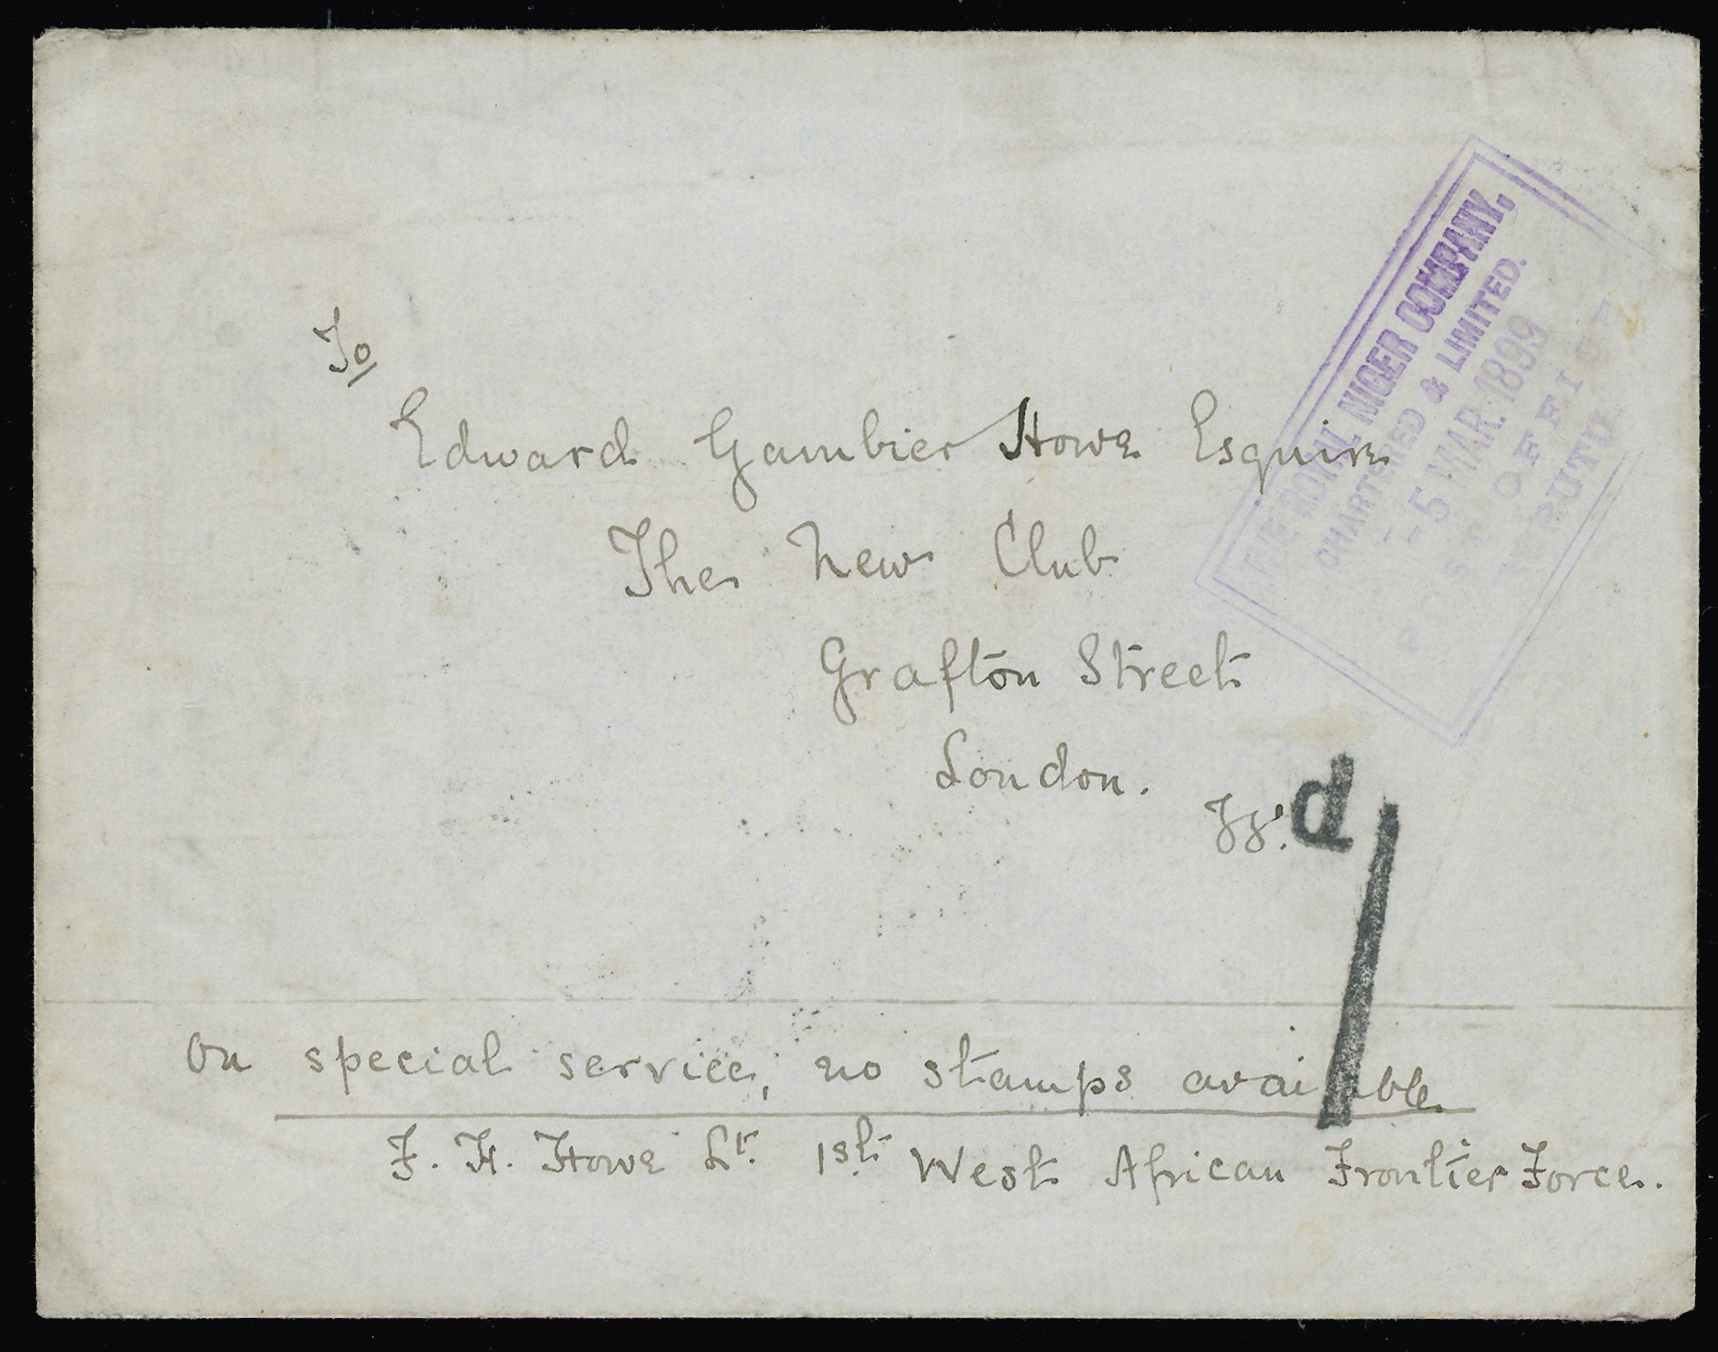 THE ROYAL NIGER COMPANY,
CHARTERED & LIMITED.
- 5 MAR. 1899
POST OFFICE
To
Edward Gambier Howe Esquire
The New Club
Grafton Street
London.
d
1
On special service, no stamps available
F. H. Howe Lt. 1st West African Frontier Force.